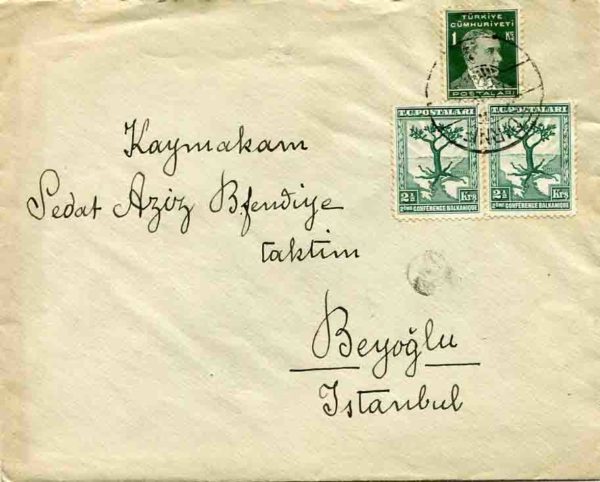 TÜRKİYE
CÜMHURİYETİ
1 KŞ
POSTALARI
T.C. POSTALARI
2½ Krş
2ème CONFÉRENCE BALKANIQUE
T.C. POSTALARI
2½ Krş
2ème CONFÉRENCE BALKANIQUE
Kaymakam
Sedat Aziz Bfendiye
taktim
Beyoğlu
Istanbul